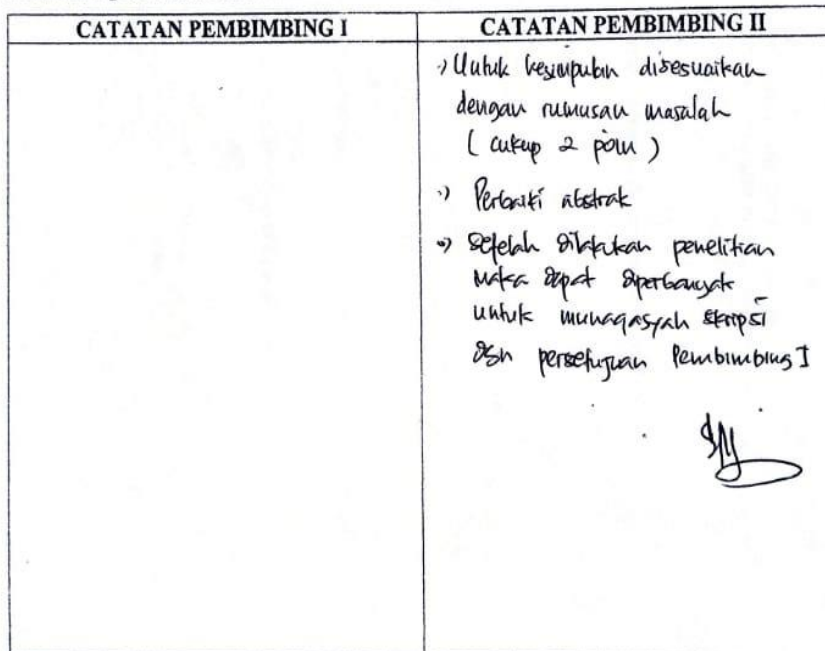 CATATAN PEMBIMBING I
CATATAN PEMBIMBING II
Untuk kesimpulan disesuaikan
dengan rumusan masalah
( cukup 2 poin )
Perbaiki abstrak
Setelah dilakukan penelitian
maka dapat diperbanyak
untuk munaqasyah skripsi
dgn persetujuan Pembimbing I